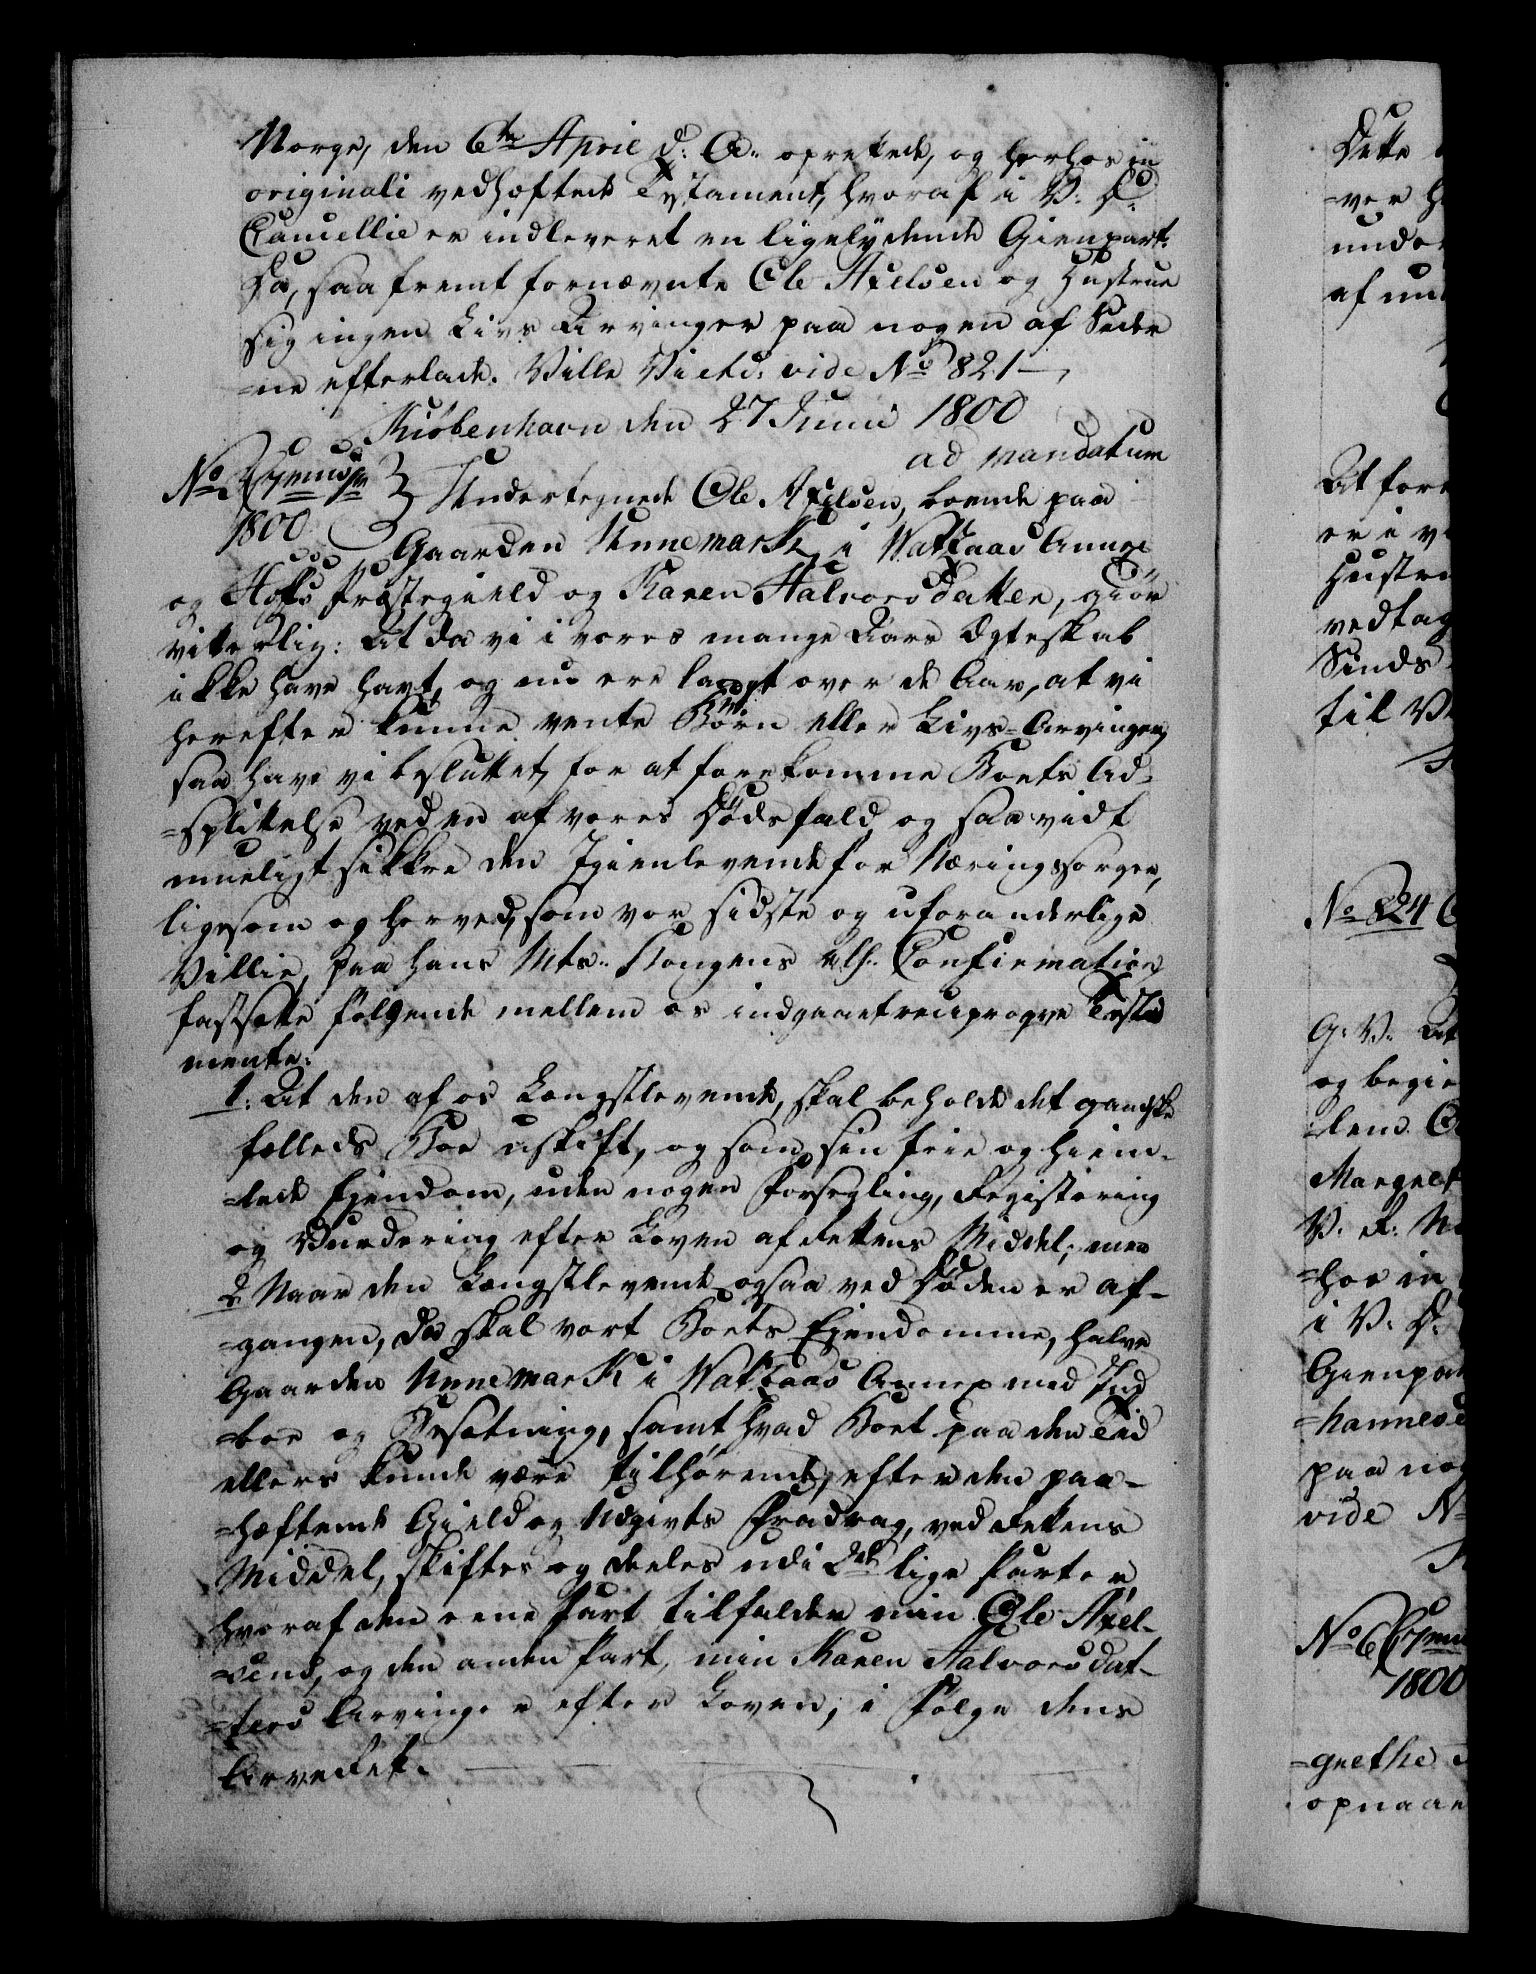 Norge, den 6te April d: A: oprettede, og herhos in
originali vedhæftede Testament, hvoraf i V: D:
Cancellie er indleveret en ligelydende Gienpart.
Da, saafremt fornævnte Ole Axelsen og Hustrue
sig ingen Livs Arvinger paa nogen af Sider
=ne efterlade. Ville Vi etc: vide No 821 —
Kiöbenhavn den 27 Junii 1800
ad mandatum
No
1800
Undertegnede Ole Axelsen, boende paa
Gaarden Unnemark i Wattaas Annex
og Hofs Præstegield og Karen Halvorsdatter, giör
vitterlig: At da vi i vores mange Aars Ægteskab
ikke have havt, og nu ere langt over de Aar, at vi
herefter kunne vente Börn eller Livs-Arvinger,
saa have vi besluttet, for at forekomme Boets Ad-
=splittelse ved en af vores Dödsfald, og saavidt
mueligt sikkre den Igienlevende for Næringssorger,
ligesom og herved, som vor sidste og uforanderlige
Villie, paa Hans Mts: Kongens allh: Confirmation
fastsætte fölgende mellem os indgaaet reciproqve Testa
mente:
1. At den af os Længstlevende, skal beholde det gandske
fælleds Boe uskift, og som sin frie og hiem-
=lede Eiendom, uden nogen Forsegling, Registering
og Vurdering efter Loven af Rettens Middel; men
2 Naar den Længstlevende ogsaa ved Döden er af-
=gangen, da skal vort Boets Eiendomme, halve
Gaarden Unnemark i Wattaas Annex med Ind
=boe og Besætning, samt hvad Boet paa den Tid
ellers kunde være tilhörende, efter den paa-
=hæftende Gield og Udgivts Fradrag, ved Rettens
Middel, skiftes og deeles udi 2de lige Parter
hvoraf den eene Part tilfalder min Ole Axel-
=sens, og den anden Part, min Karen Halvorsdat-
=ters Arvinger efter Loven, i Fölge dens
Arveret.
Dette
=ver
under
af
At for
er i
Hustru
vedtag
Sinds
til
No 824
G: V: At
og begie
=lem
Margret
V: F:
=hos in
i V: D:
Gienpar
=hannesd
paa nog
vide No
No 6
1800
=grethe
opnaae